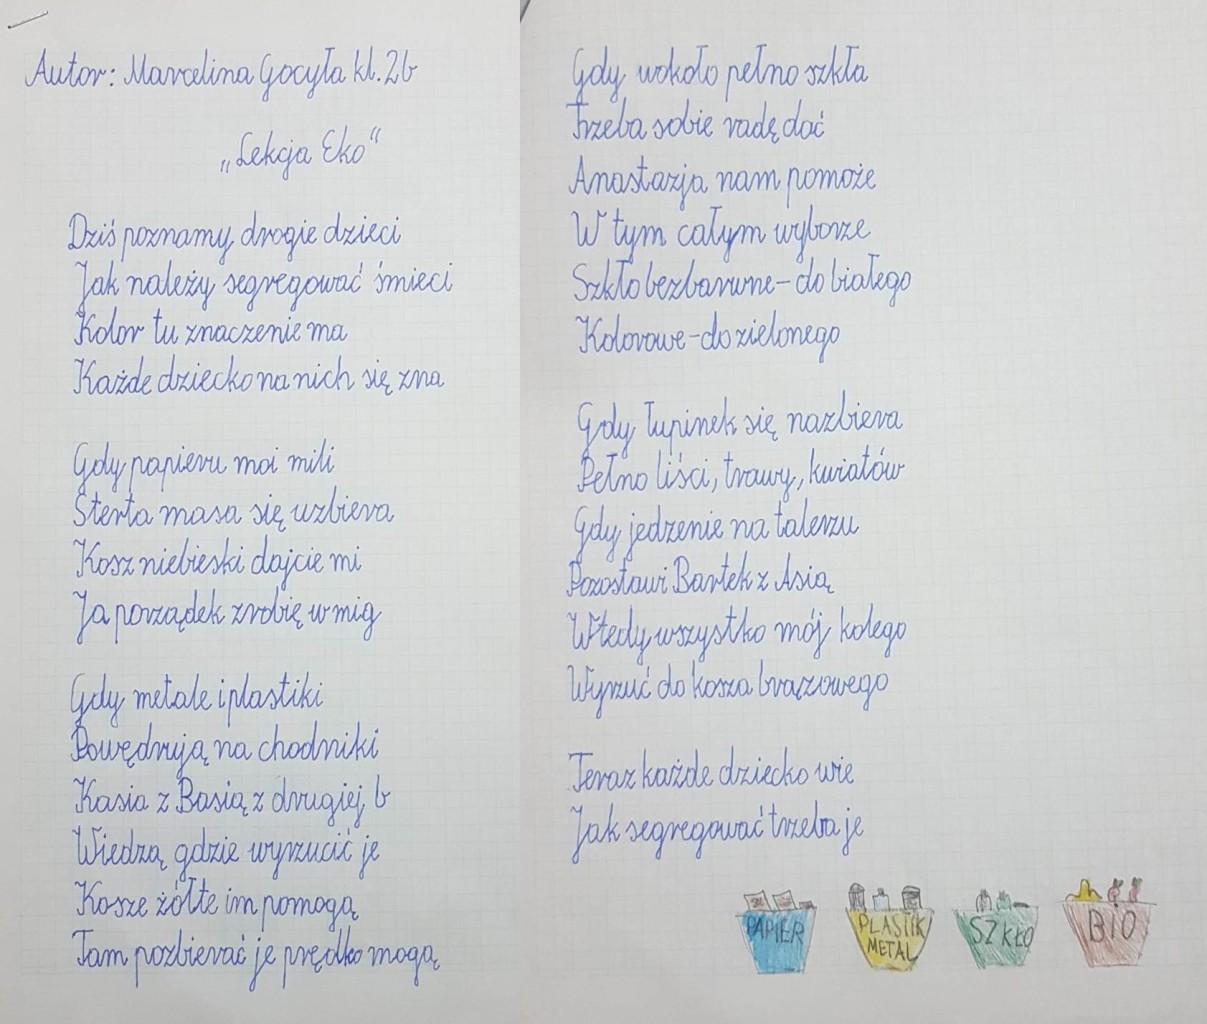 Autor: Marcelina Gocyła kl. 2b
„Lekcja Eko“
Dziś poznamy drogie dzieci
Jak należy segregować śmieci
Kolor tu znaczenie ma
Każde dziecko na nich się zna
Gdy papieru moi mili
Sterta masa się uzbiera
Kosz niebieski dajcie mi
Ja porządek zrobię w mig
Gdy metale i plastiki
Powędrują na chodniki
Kasia z Basią z drugiej b
Wiedzą gdzie wyrzucić je
Kosze żółte im pomogą
Tam pozbierać je prędko mogą
Gdy wokoło pełno szkła
Trzeba sobie radę dać
Anastazja nam pomoże
W tym całym wyborze
Szkło bezbarwne - do białego
Kolorowe - do zielonego
Gdy łupinek się nazbiera
Pełno liści, trawy, kwiatów
Gdy jedzenie na talerzu
Pozostawi Bartek z Asią
Wtedy wszystko mój kolego
Wyrzuć do kosza brązowego
Teraz każde dziecko wie
Jak segregować trzeba je
PAPIER
PLASTIK
METAL
SZKŁO
BIO